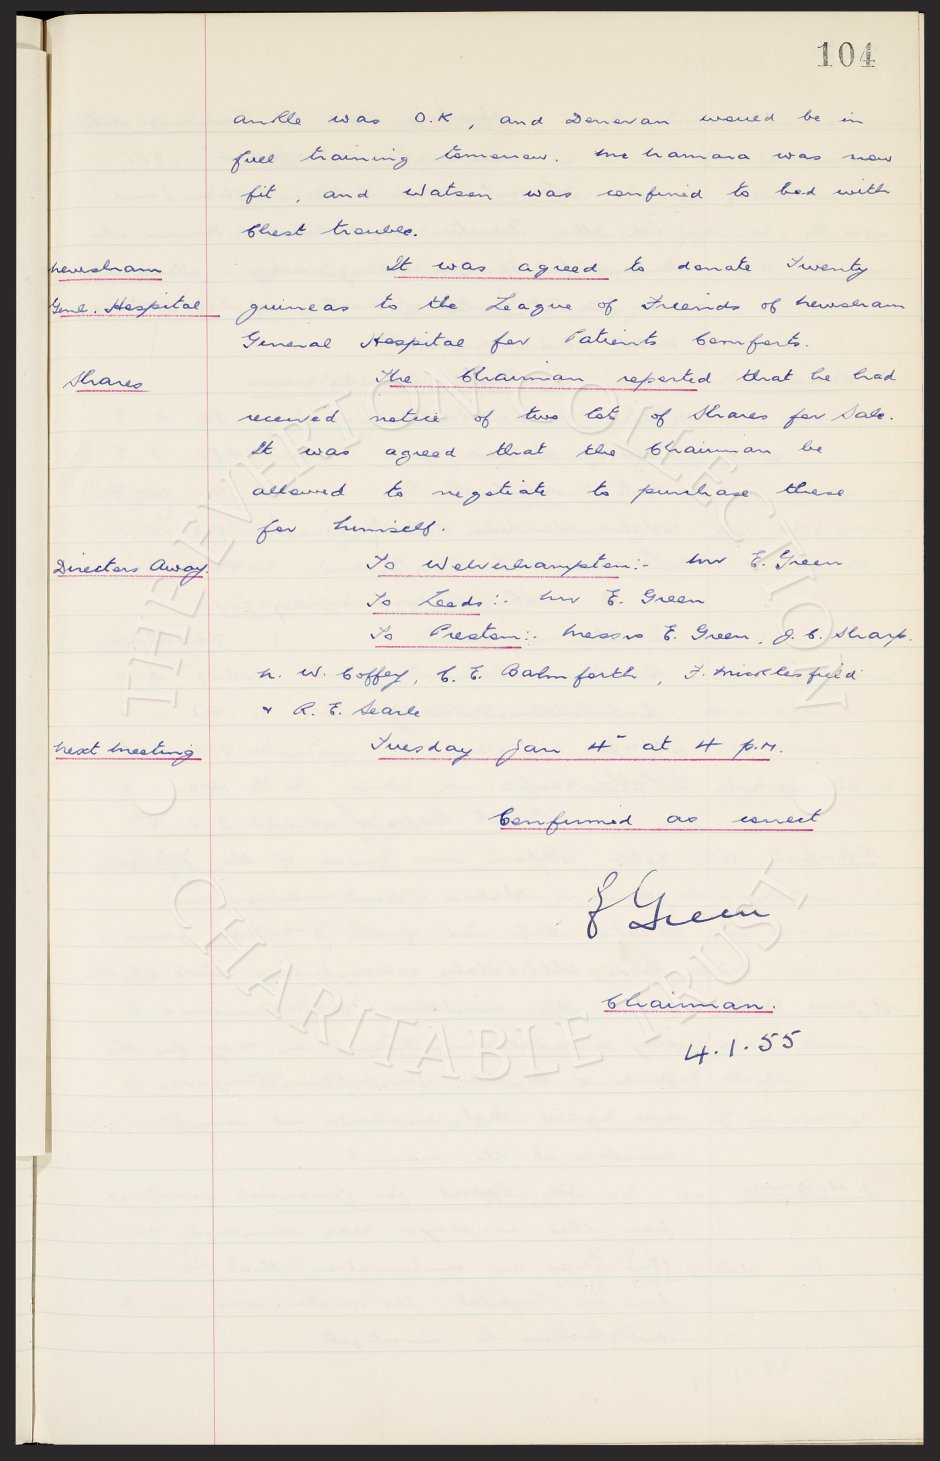 104
ankle was O.K, and Donovan would be in
full training tomorrow. McNamara was now
fit, and Watson was confined to bed with
Chest trouble.
Newsham It was agreed to donate Twenty
Genl. Hospital guineas to the League of Friends of Newsham
General Hospital for Patients Comforts.
Shares The Chairman reported that he had
received notice of two lots of Shares for Sale.
It was agreed that the Chairman be
allowed to negotiate to purchase these
for himself.
Directors Away. To Wolverhampton:- Mr E. Green
To Leeds:- Mr E. Green
To Preston:- Messrs E. Green, J. C. Sharp.
N. W. Coffey, C. E. Balmforth, F. Micklesfield
& R. E. Searle
Next Meeting Tuesday Jan 4th at 4 p.m.
Confirmed as correct
E Green
Chairman.
4.1.55
THE EVERTON COLLECTION
CHARITABLE TRUST